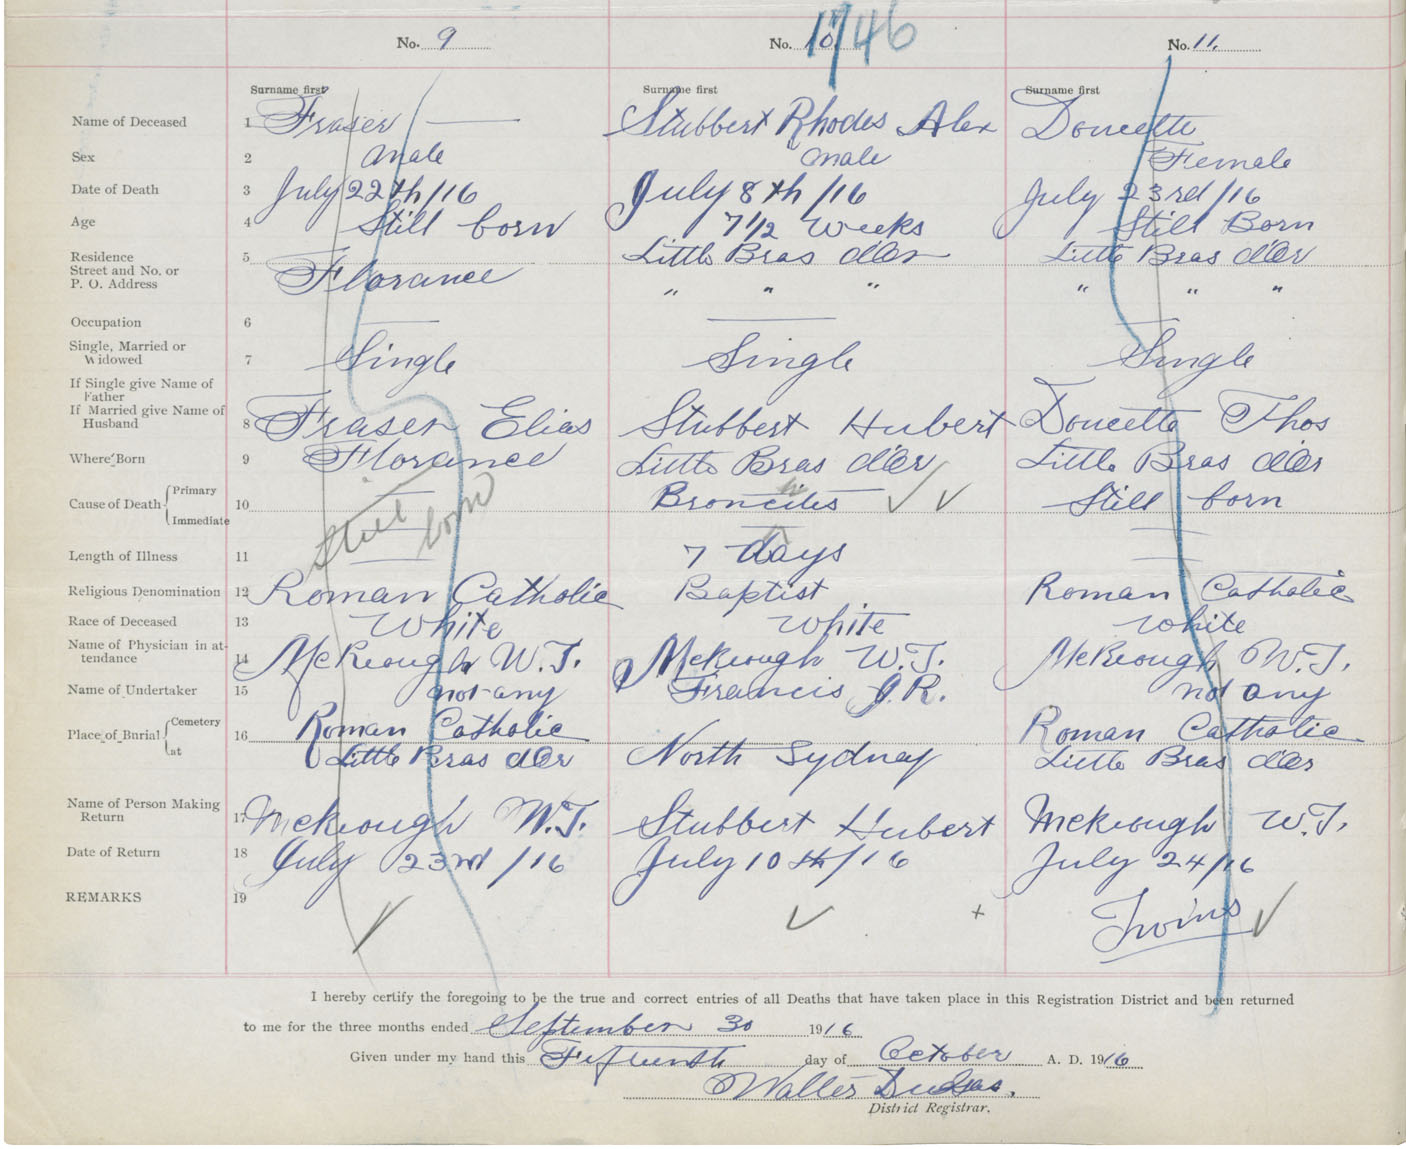 No. 9 No. 10. 1746 No. 11.
Surname first Surname first Surname first
Name of Deceased 1 Fraser — Stubbert Rhodes Alex Doucette
Sex 2 Male Male Female
Date of Death 3 July 22th/16 July 8th/16 July 23rd/16
Age 4 Still born 7 1/2 Weeks Still Born
Residence 5 Little Bras d'Or Little Bras d'Or
Street and No. or P. O. Address Florance " " " " " "
Occupation 6 — — —
Single, Married or Widowed 7 Single Single Single
If Single give Name of Father
If Married give Name of Husband 8 Fraser Elias Stubbert Hubert Doucette Thos
Where Born 9 Florance Little Bras d'Or Little Bras d'Or
Cause of Death { Primary 10 — Broncitis ✓ ✓ Still born
Immediate Still born — —
Length of Illness 11 — 7 days —
Religious Denomination 12 Roman Catholic Baptist Roman Catholic
Race of Deceased 13 White White White
Name of Physician in attendance 14 McKeough W.T. McKeough W.T. McKeough W.T.
Name of Undertaker 15 not any Francis J.R. not any
Place of Burial { Cemetery 16 Roman Catholic Roman Catholic
at Little Bras d'Or North Sydney Little Bras d'Or
Name of Person Making Return 17 McKeough W.T. Stubbert Hubert McKeough W.T.
Date of Return 18 July 23rd/16 July 10th/16 July 24/16
REMARKS 19 ✓ ✓ + Twins ✓
I hereby certify the foregoing to be the true and correct entries of all Deaths that have taken place in this Registration District and been returned
to me for the three months ended September 30 1916
Given under my hand this Fifteenth day of October A. D. 1916
Walter
District Registrar.